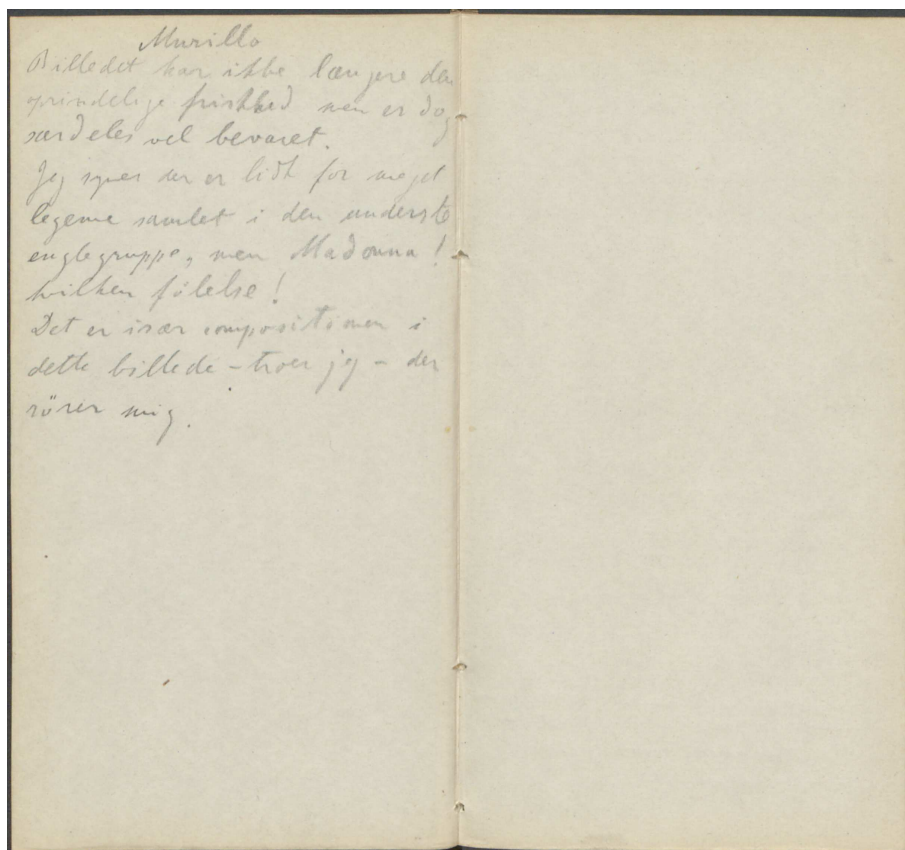 Murillo
Billedet har ikke længere den
oprindelige friskhed men er dog
særdeles vel bevaret.
Jeg synes der er lidt for meget
legeme samlet i den underste
englegruppe, men Madonna!
hvilken følelse!
Det er især compositionen i
dette billede – troer jeg – der
rörer mig.